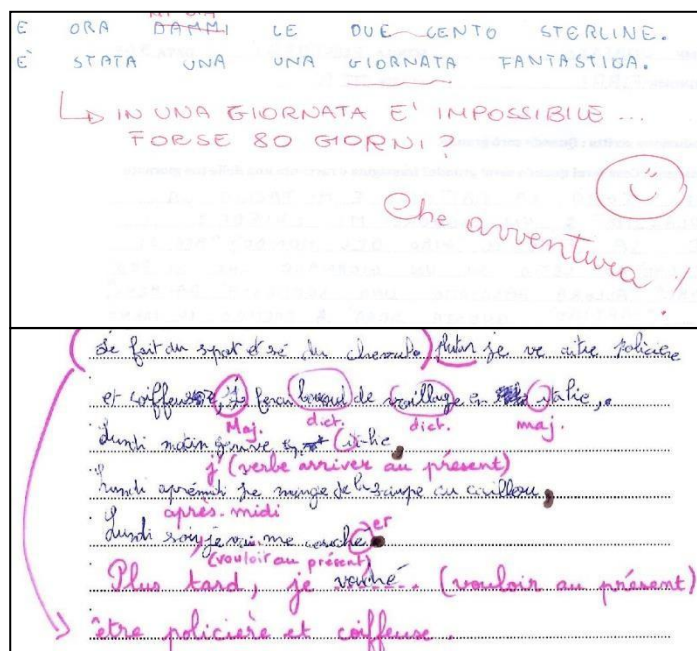 MI DIA
E ORA DAMMI LE DUE CENTO STERLINE.
E' STATA UNA UNA GIORNATA FANTASTICA.
IN UNA GIORNATA E' IMPOSSIBILE...
FORSE 80 GIORNI?
Che avventura!
de fait du spor et du plutar je ve
et de en italie.
Maj. dict. dict. maj.
Lundi matin italie
j' (verbe arriver au présent)
Lundi je mange de la soupe au caillou
après-midi er
Lundi soir je vai me couché
(vouloir au présent)
Plus tard, je (vouloir au présent)
être policière et coiffeuse.